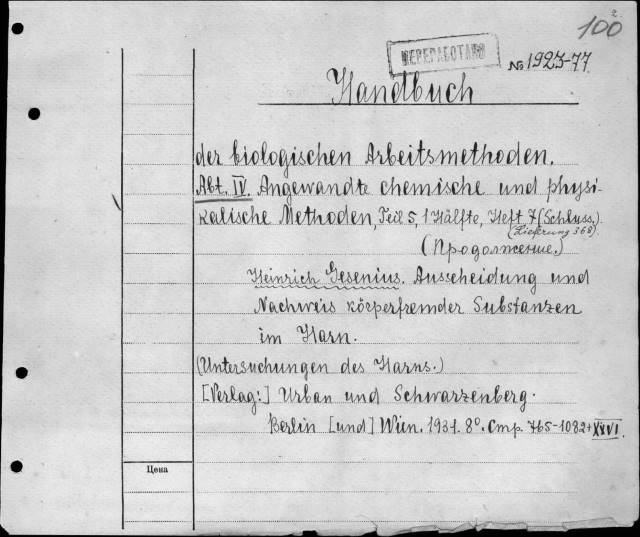 100
2.
ПЕРЕРАБОТАНО
№ 1923-77.
Handbuch
der biologischen Arbeitsmethoden.
Abt. IV. Angewandte chemische und physi-
kalische Methoden, Teil 5, 1 Hälfte, Heft 7 (Schluss.)
(Lieferung 368).
(Продолжение.)
Heinrich Gesenius. Ausscheidung und
Nachweis körperfremder Substanzen
im Harn.
(Untersuchungen des Harns.)
[Verlag:] Urban und Schwarzenberg.
Berlin [und] Wien. 1931. 8°. Стр. 765-1082+XXVI.
Цена